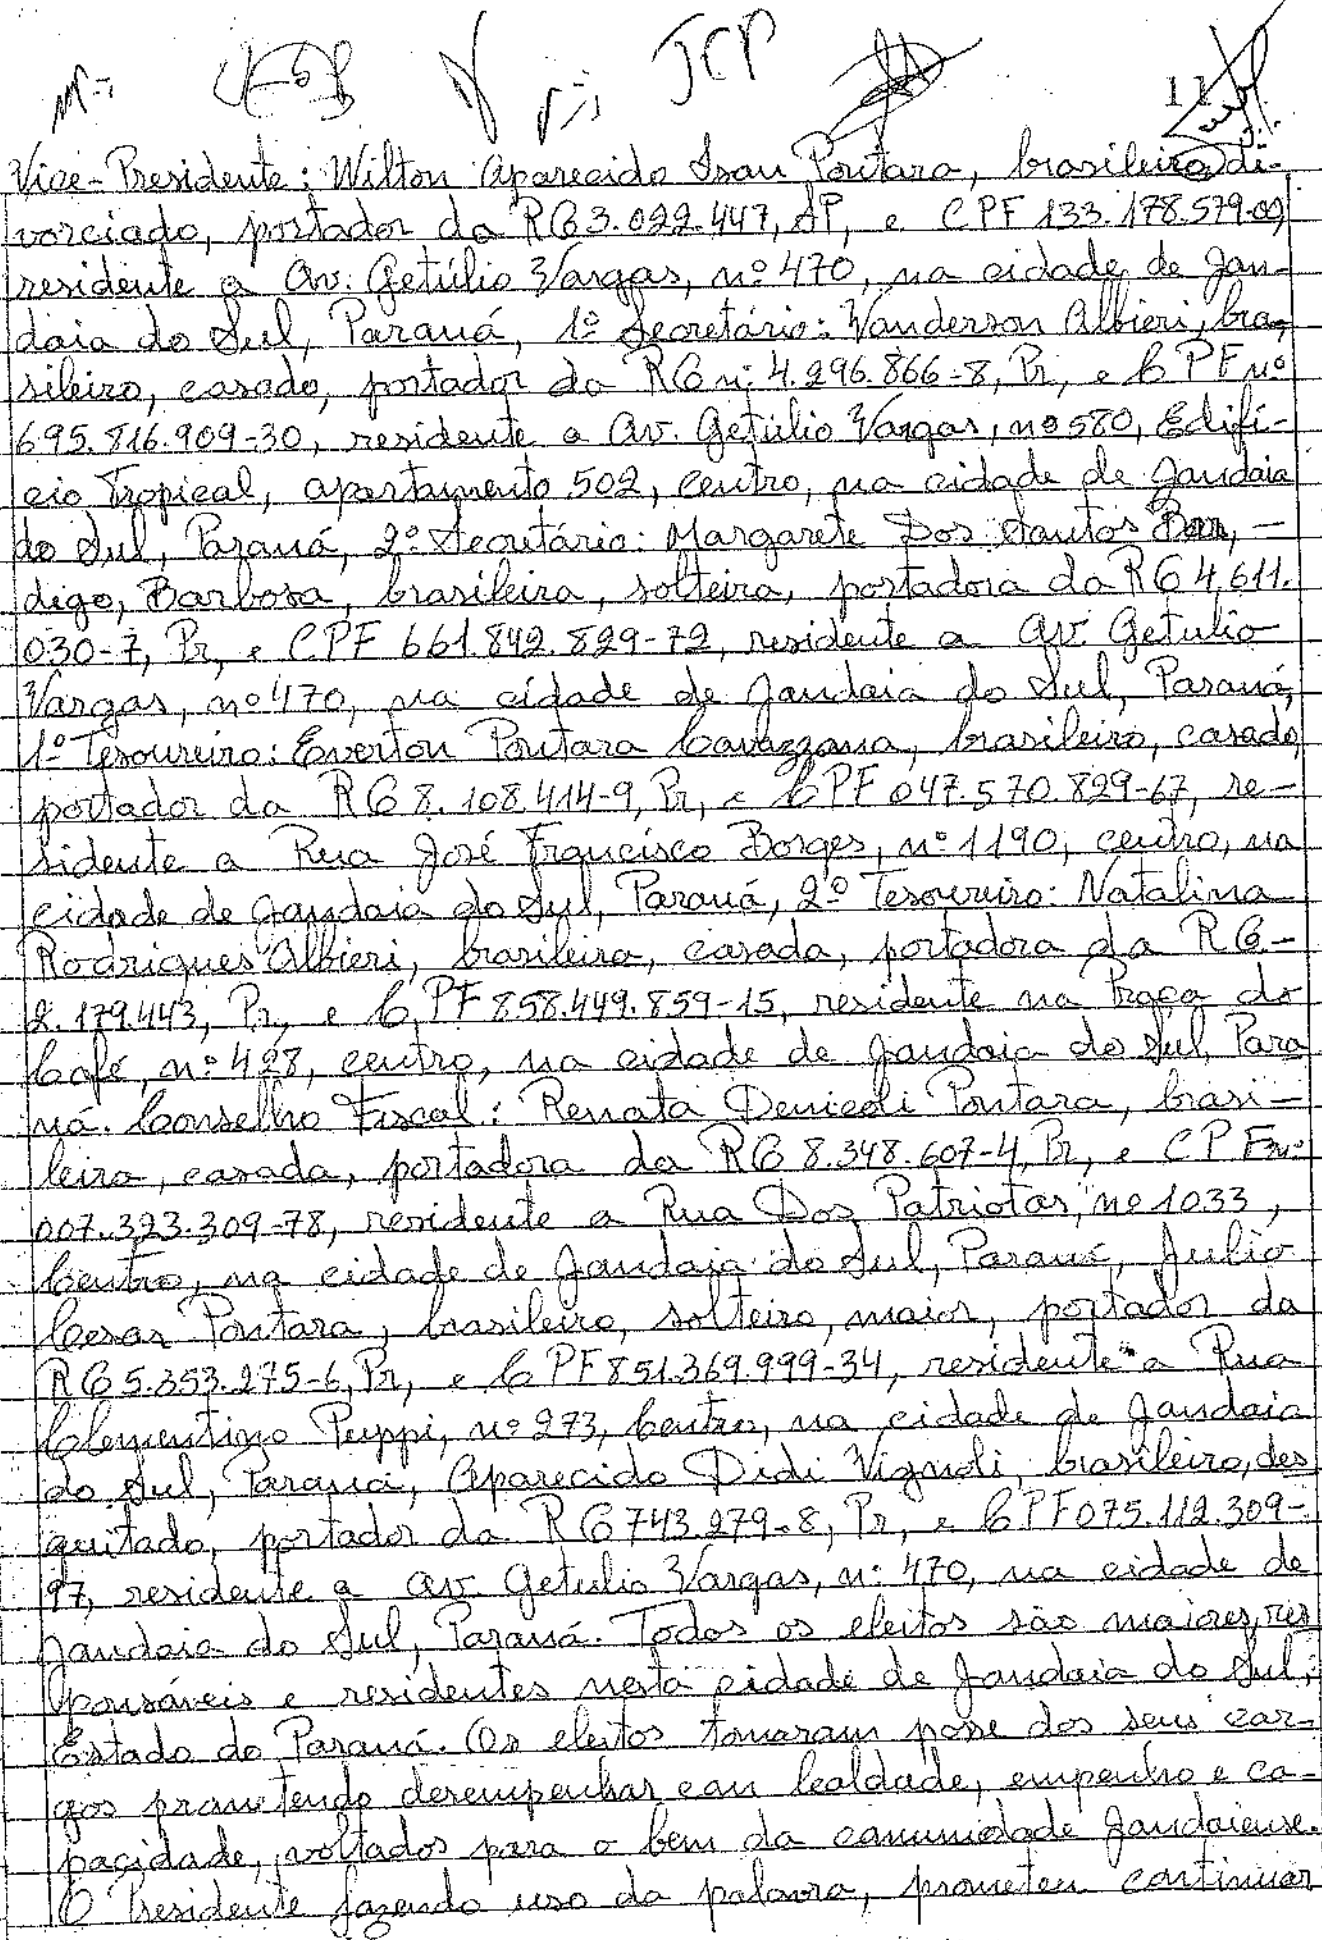 JCP
11
Vice-Presidente: Wilton Aparecido Isau Pontara, brasileiro, di-
vorciado, portador da RG 3.022.447, SP, e CPF 133.178.579-00,
residente a Av. Getúlio Vargas, nº 470, na cidade de Jan-
daia do Sul, Paraná, 1º Secretário: Wanderson Albieri, bra-
sileiro, casado, portador da RG nº 4.296.866-8, Pr, e CPF nº
695.816.909-30, residente a Av. Getúlio Vargas, nº 580, Edifí-
cio Tropical, apartamento 502, centro, na cidade de Jandaia
do Sul, Paraná, 2º Secretário: Margarete Dos Santos
digo, Barbosa, brasileira, solteira, portadora da RG 4.611.
030-7, Pr, e CPF 661.842.829-72, residente a Av. Getulio
Vargas, nº 470, na cidade de Jandaia do Sul, Paraná,
1º Tesoureiro: Everton Pontara Cavazzana, brasileiro, casado,
portador da RG 8.108.414-9, Pr, e CPF 047.570.829-67, re-
sidente a Rua José Francisco Borges, nº 1190, centro, na
cidade de Jandaia do Sul, Paraná, 2º Tesoureiro: Natalina
Rodrigues Albieri, brasileira, casada, portadora da RG-
2.179.443, Pr, e CPF 858.449.859-15, residente na Praça do
Café, nº 428, centro, na cidade de Jandaia do Sul, Para
ná. Conselho Fiscal: Renata Denicoli Pontara, brasi-
leira, casada, portadora da RG 8.348.607-4, Pr, e CPF nº
007.323.309-78, residente a Rua Dos Patriotas, nº 1033,
Centro, na cidade de Jandaia do Sul, Paraná, Julio
Cesar Pontara, brasileiro, solteiro, maior, portador da
RG 5.353.275-6, Pr, e CPF 851.369.999-34, residente a Rua
Clementino Puppi, nº 273, Centro, na cidade de Jandaia
do Sul, Paraná, Aparecido Didi Vignoli, brasileiro, des
quitado, portador da RG 743.279-8, Pr, e CPF 075.112.309-
97, residente a Av. Getulio Vargas, nº 470, na cidade de
Jandaia do Sul, Paraná. Todos os eleitos são maiores, res
ponsáveis e residentes nesta cidade de Jandaia do Sul,
Estado do Paraná. Os eleitos tomaram posse dos seus car-
gos prometendo desempenhar com lealdade, empenho e ca-
pacidade, voltados para o bem da comunidade Jandaiense.
O Presidente fazendo uso da palavra, prometeu continuar